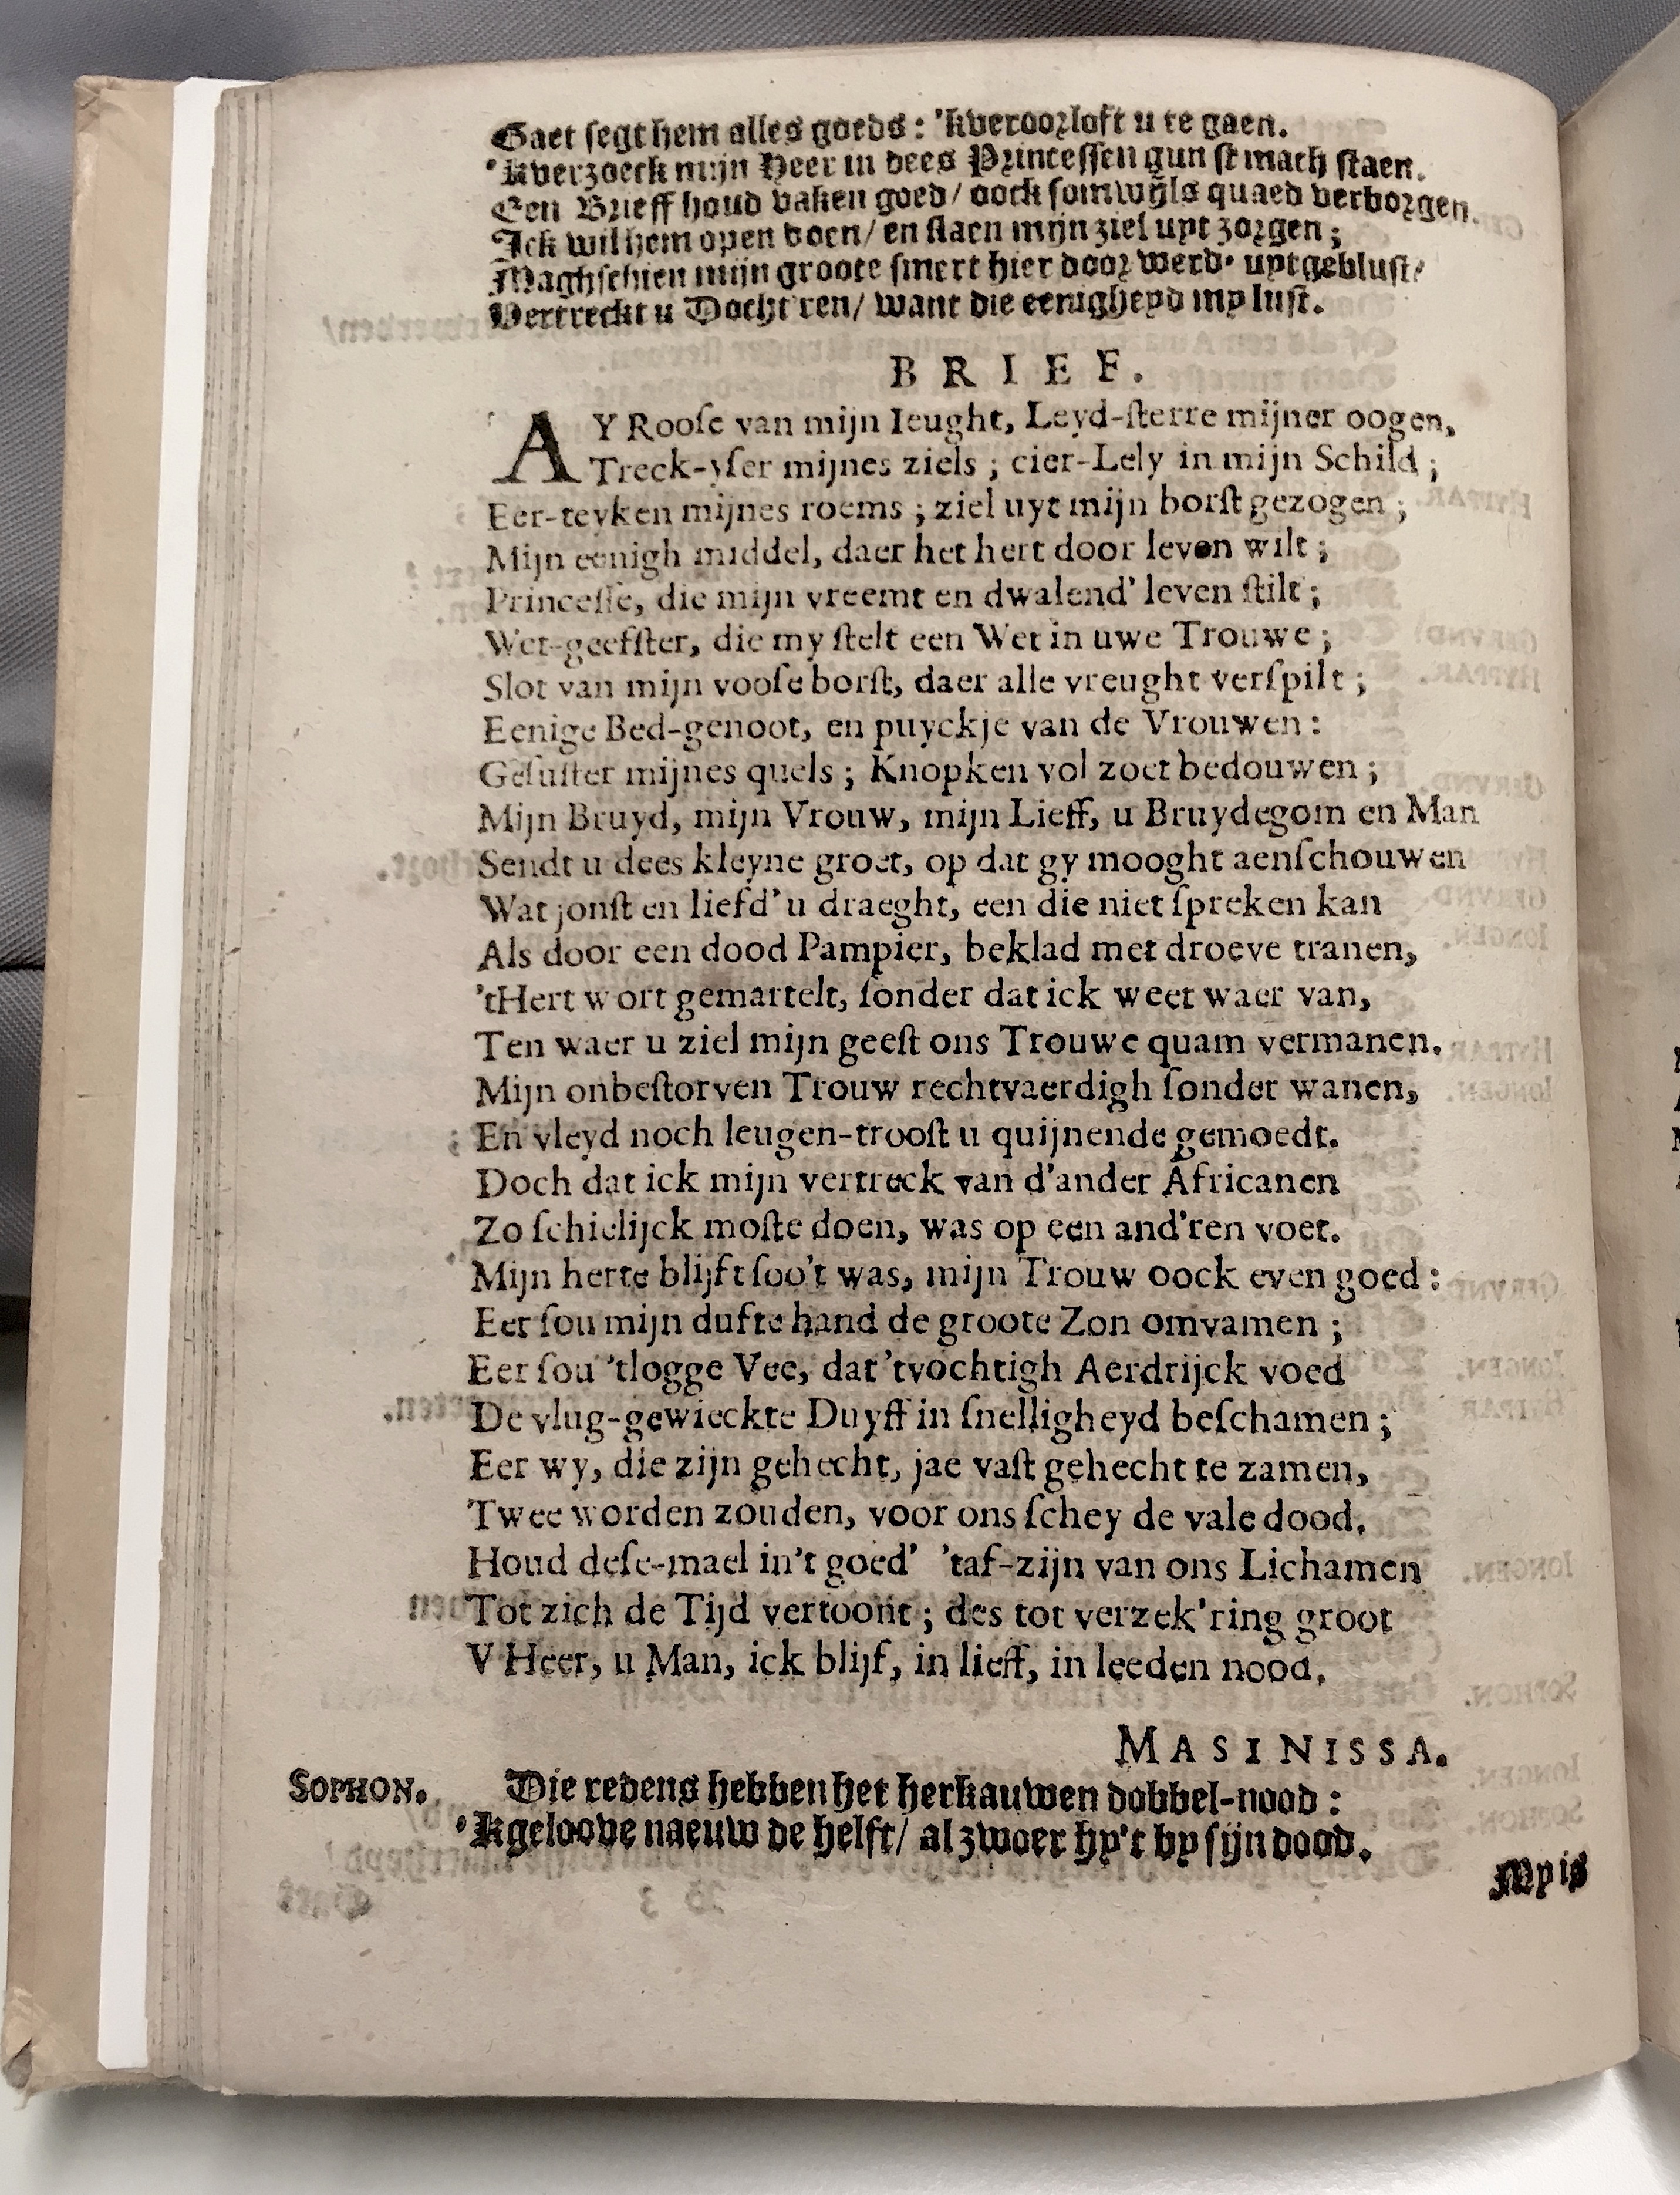 Gaet segt hem alles goeds: 'kveroorloft u te gaen.
'kverzoeck mijn Heer in dees Princessen gunst mach staen.
Een Brieff houd vaken goed/ oock somwijls quaed verborgen.
Ick wil hem open doen/ en slaen mijn ziel uyt zorgen;
Maghschien mijn groote smert hier door werd' uytgeblust/
Vertreckt u Docht'ren/ want die eenigheyd my lust.
BRIEF.
AY Roose van mijn Ieught, Leyd-sterre mijner oogen,
Treck-yser mijnes ziels; cier-Lely in mijn Schild;
Eer-teyken mijnes roems; ziel uyt mijn borst gezogen;
Mijn eenigh middel, daer het hert door leven wilt;
Princesse, die mijn vreemt en dwalend' leven stilt;
Wet-geefster, die my stelt een Wet in uwe Trouwe;
Slot van mijn voose borst, daer alle vreught verspilt;
Eenige Bed-genoot, en puyckje van de Vrouwen:
Gesuster mijnes quels; Knopken vol zoet bedouwen;
Mijn Bruyd, mijn Vrouw, mijn Lieff, u Bruydegom en Man
Sendt u dees kleyne groet, op dat gy mooght aenschouwen
Wat jonst en liefd' u draeght, een die niet spreken kan
Als door een dood Pampier, beklad met droeve tranen,
'tHert wort gemartelt, sonder dat ick weet waer van,
Ten waer u ziel mijn geest ons Trouwe quam vermanen.
Mijn onbestorven Trouw rechtvaerdigh sonder wanen,
En vleyd noch leugen-troost u quijnende gemoedt.
Doch dat ick mijn vertreck van d'ander Africanen
Zo schielijck moste doen, was op een and'ren voet.
Mijn herte blijft soo't was, mijn Trouw oock even goed:
Eer sou mijn dufte hand de groote Zon omvamen;
Eer sou 'tlogge Vee, dat 'tvochtigh Aerdrijck voed
De vlug-gewieckte Duyff in snelligheyd beschamen;
Eer wy, die zijn gehecht, jae vast gehecht te zamen,
Twee worden zouden, voor ons schey de vale dood.
Houd dese-mael in't goed' 'taf-zijn van ons Lichamen
Tot zich de Tijd vertoont; des tot verzek'ring groot
V Heer, u Man, ick blijf, in lieff, in leed en nood.
MASINISSA.
SOPHON. Die redens hebben het herkauwen dobbel-nood:
'Kgeloove naeuw de helft/ al zwoer hy't by sijn dood.
My is